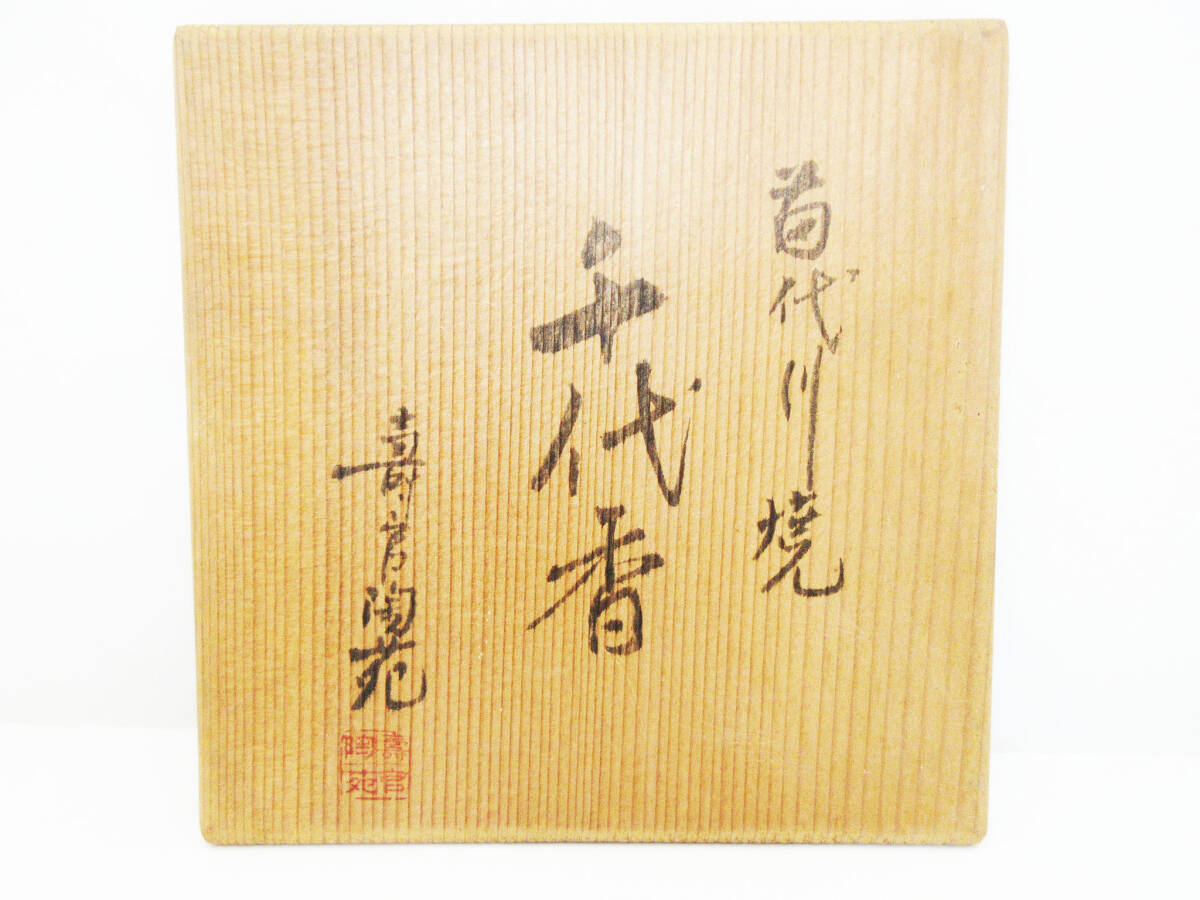 苗代川焼
千代香
壽官陶苑
壽官
陶苑